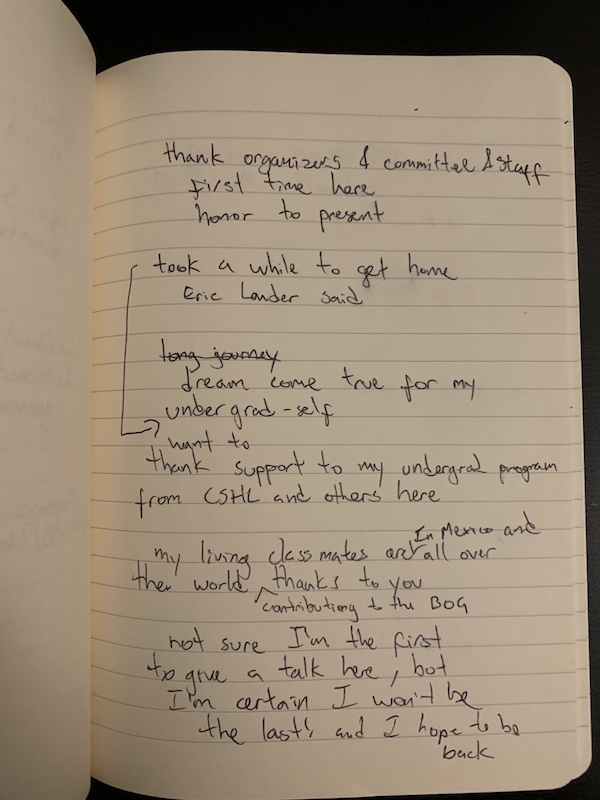 thank organizers & committee & staff
first time here
honor to present
took a while to get home
Eric Lander said
long journey
dream come true for my
undergrad-self
want to
thank support to my undergrad program
from CSHL and others here
In Mexico and
my living classmates are all over
the world thanks to you
contributiong to the BOG
not sure I'm the first
to give a talk here, but
I'm certain I won't be
the last! and I hope to be
back